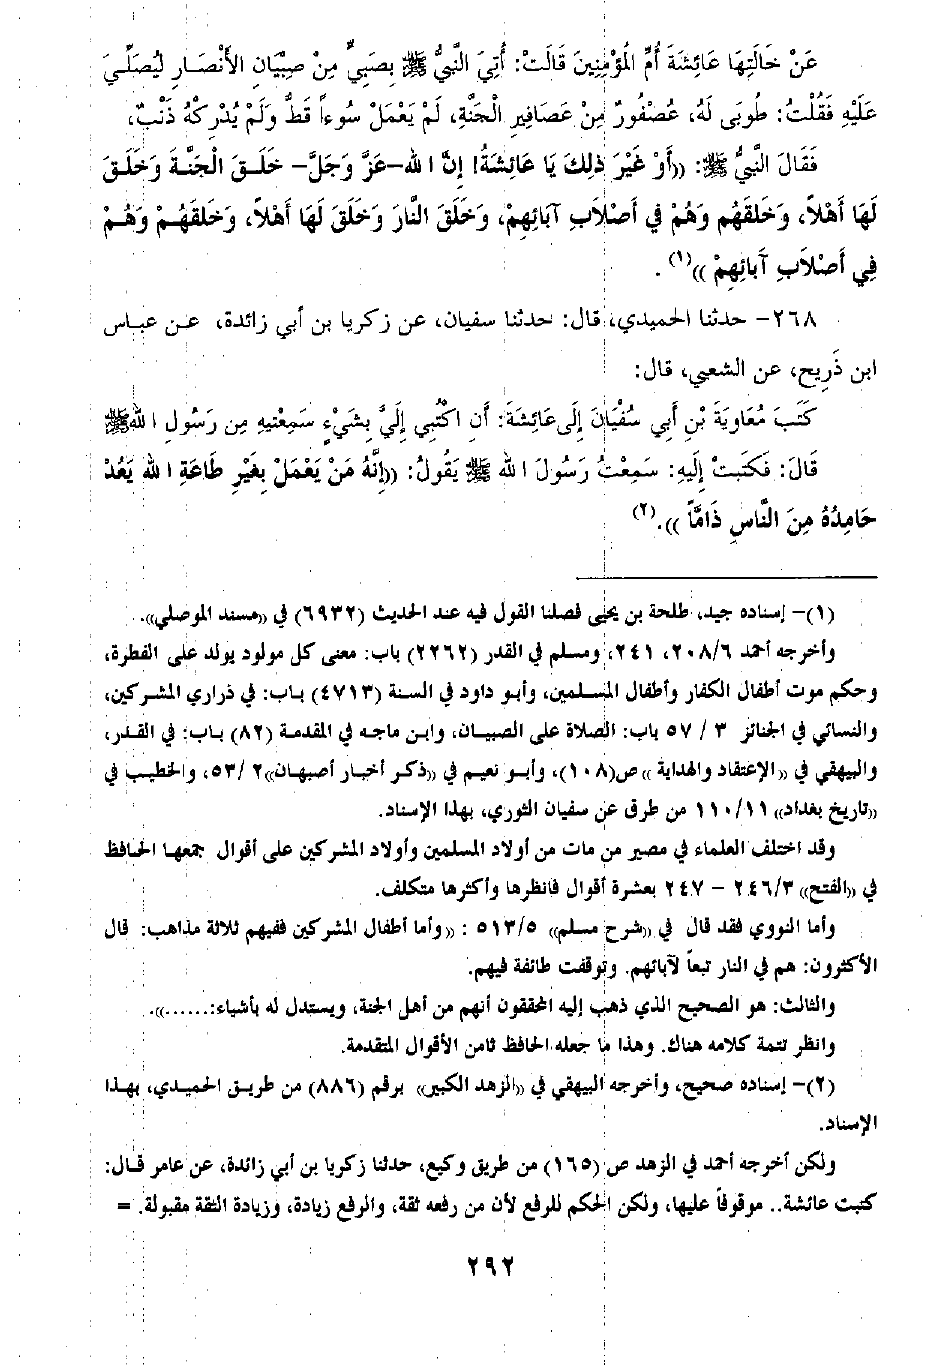 عَنْ خَالَتِهَا عَائِشَةَ أُمِّ الْمُؤْمِنِينَ قَالَتْ: أُتِيَ النَّبِيُّ ﷺ بِصَبِيٍّ مِنْ صِبْيَانِ الأَنْصَارِ لِيُصَلِّيَ
عَلَيْهِ فَقُلْتُ: طُوبَى لَهُ، عُصْفُورٌ مِنْ عَصَافِيرِ الْجَنَّةِ، لَمْ يَعْمَلْ سُوءاً قَطُّ وَلَمْ يُدْرِكْهُ ذَنْبٌ،
فَقَالَ النَّبِيُّ ﷺ: ((أَوْ غَيْرَ ذلِكَ يَا عَائِشَةُ! إِنَّ الله-عَزَّ وَجَلَّ- خَلَقَ الْجَنَّةَ وَخَلَقَ
لَهَا أَهْلاً، وَخَلَقَهُم وَهُمْ فِي أَصْلاَبِ آبَائِهِمْ، وَخَلَقَ النَّارَ وَخَلَقَ لَهَا أَهْلاً، وَخَلَقَهُمْ وَهُمْ
فِي أَصْلاَبِ آبائِهِمْ ))(١) .
٢٦٨- حدثنا الحميدي، قال: حدثنا سفيان، عن زكريا بن أبي زائدة، عن عباس
ابن ذَرِيح، عن الشعبي، قال:
كَتَبَ مُعَاوِيَةَ بْنِ أَبِي سُفْيَانَ إِلَى عَائِشَةَ: أَنِ اكْتُبِي إِلَيَّ بِشَيْءٍ سَمِعْتِيهِ مِن رَسُولِ اللهﷺ
قَالَ: فَكَتَبَتْ إِلَيهِ: سَمِعْتُ رَسُولَ الله ﷺ يَقُولُ: ((إِنَّهُ مَنْ يَعْمَلْ بِغَيْرِ طَاعَةِ الله يَعُدْ
حَامِدُهُ مِنَ النَّاسِ ذَامّاً )).(٢)
(١)- إسناده جيد، طلحة بن يحيى فصلنا القول فيه عند الحديث (٦٩٣٢) في ((مسند الموصلي)).
وأخرجه أحمد ٢٠٨/٦، ٢٤١، ومسلم في القدر (٢٢٦٢) باب: معنى كل مولود يولد على الفطرة،
وحكم موت أطفال الكفار وأطفال المسلمين، وأبو داود في السنة (٤٧١٣) باب: في ذراري المشركين،
والنسائي في الجنائز ٣ / ٥٧ باب: الصلاة على الصبيان، وابن ماجه في المقدمة (٨٢) باب: في القدر،
والبيهقي في ((الإعتقاد والهداية )) ص(١٠٨)، وأبو نعيم في ((ذكر أخبار أصبهان))٢ /٥٣، والخطيب في
((تاريخ بغداد)) ١١٠/١١ من طرق عن سفيان الثوري، بهذا الإسناد.
وقد اختلف العلماء في مصير من مات من أولاد المسلمين وأولاد المشركين على أقوال جمعها الحافظ
في ((الفتح)) ٢٤٦/٣ - ٢٤٧ بعشرة أقوال فانظرها وأكثرها متكلف.
وأما النووي فقد قال في ((شرح مسلم)) ٥١٣/٥ : ((وأما أطفال المشركين ففيهم ثلاثة مذاهب: قال
الأكثرون: هم في النار تبعاً لآبائهم. وتوقفت طائفة فيهم.
والثالث: هو الصحيح الذي ذهب إليه المحققون أنهم من أهل الجنة، ويستدل له بأشياء:......)).
وانظر تتمة كلامه هناك. وهذا ما جعله الحافظ ثامن الأقوال المتقدمة.
(٢)- إسناده صحيح، وأخرجه البيهقي في ((الزهد الكبير)) برقم (٨٨٦) من طريق الحميدي، بهذا
الإسناد.
ولكن أخرجه أحمد في الزهد ص (١٦٥) من طريق وكيع، حدثنا زكريا بن أبي زائدة، عن عامر قال:
كتبت عائشة.. موقوفاً عليها، ولكن الحكم للرفع لأن من رفعه ثقة، والرفع زيادة، وزيادة الثقة مقبولة. =
٢٩٢